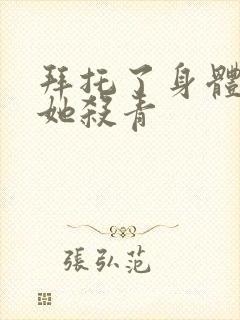 拜托了身體
她殺青
張弘范